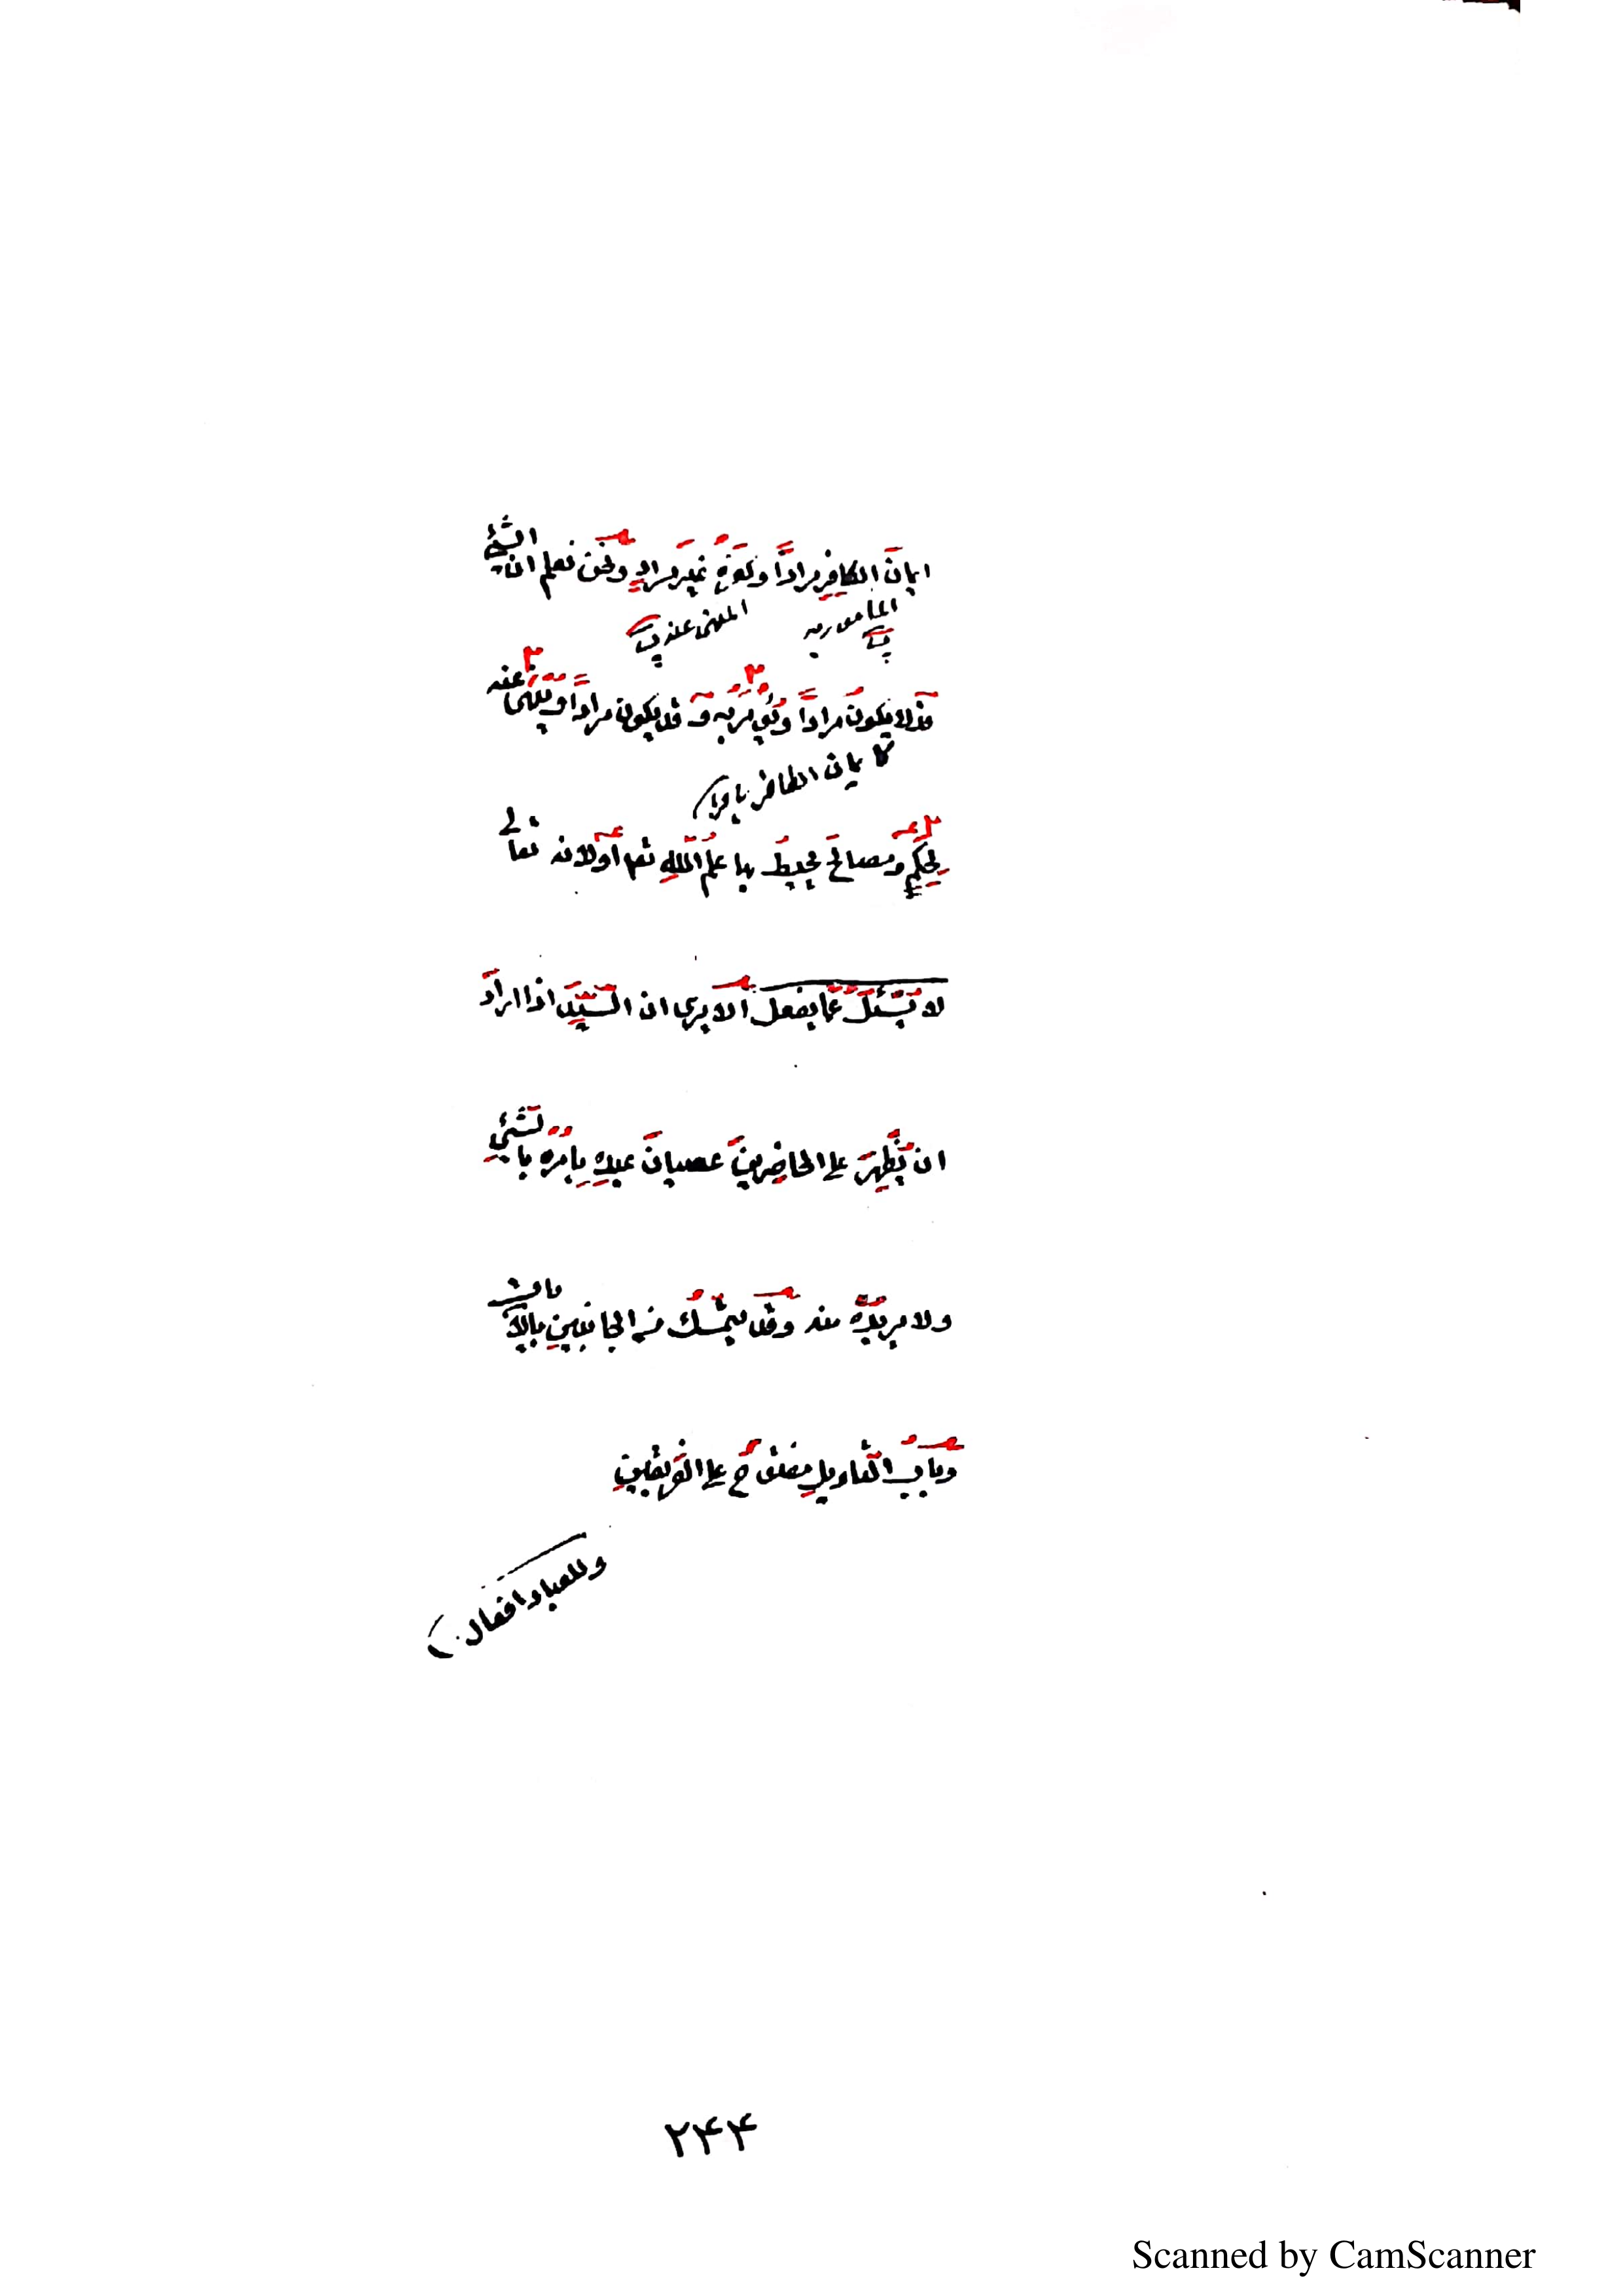 ايمانَ الكافِرِ مراداً وكفرُهُ غيرَ مرادٍ ونحن نعلم ان الشئ
المأمور به
المنهى عنه
قد لا يكونُ مراداً ويُؤمَرُ به وقد يكون مراداً ويُنهى عنه
كايمان الكافر
لِحِكَمٍ ومصالحَ يحيطُ بها علمُ اللّهِ تعا أو لانه تعالى
لا يُسْئَلُ عمّا يفعل ألا يرى ان السيّدَ اذا ارادَ
ان يُظهِرَ على الحاضِرينَ عصيانَ عبدِهِ يأمُرُه بالشئِ
ولا يريدُه منه وقد يتمسّكُ من الجانبينِ بالآيات
وبابُ التأويلِ مفتوحٌ على الفريقينِ
وللعباد افعال
٢٤٤
Scanned by CamScanner